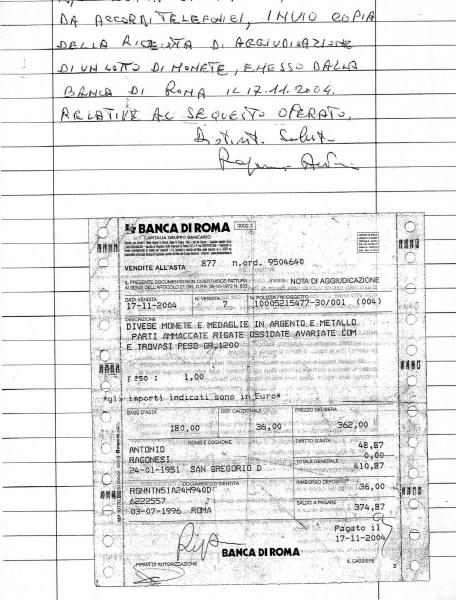 DA ACCORDI TELEFONICI, INVIO COPIA
DELLA RICEVUTA DI AGGIUDICAZIONE
DI UN LOTTO DI MONETE, EMESSO DALLA
BANCA DI ROMA IL 17.11.2004.
RELATIVE AL SEQUESTO OPERATO.
BANCA DI ROMA 3002.3
CAPITALIA GRUPPO BANCARIO
877 n.ord. 9504640
VENDITE ALL'ASTA
IL PRESENTE DOCUMENTO NON COSTITUISCE FATTURA
AI SENSI DELL'ARTICOLO 21 DEL D.P.R. 26-10-1972 N. 633
NOTA DI AGGIUDICAZIONE
DATA VENDITA N. VENDITA N. POLIZZA / N. OGGETTO
17-11-2004 7 10005215477-30/001 (004)
DESCRIZIONE
DIVESE MONETE E MEDAGLIE IN ARGENTO E METALLO
PARTI AMMACCATE RIGATE OSSIDATE AVARIATE COM
E TROVASI PESO GR.1200
1,00
*gli importi indicati sono in Euro*
BASE D'ASTA DEP. CAUZIONALE PREZZO DELIBERA
180,00 36,00 362,00
NOME E COGNOME DIRITTO D'ASTA
48,87
ANTONIO 0,00
RAGONESI TOTALE GENERALE
24-01-1951 SAN GREGORIO D 410,87
DOCUMENTO D'IDENTITA RIMBORSO DEPOSITO
RGNNTN51A24H940D 36,00
6222557 SALDO A PAGARE
03-07-1996 ROMA 374,87
Pagato il
17-11-2004
BANCA DI ROMA
FIRMA DI AUTORIZZAZIONE IL CASSIERE
2